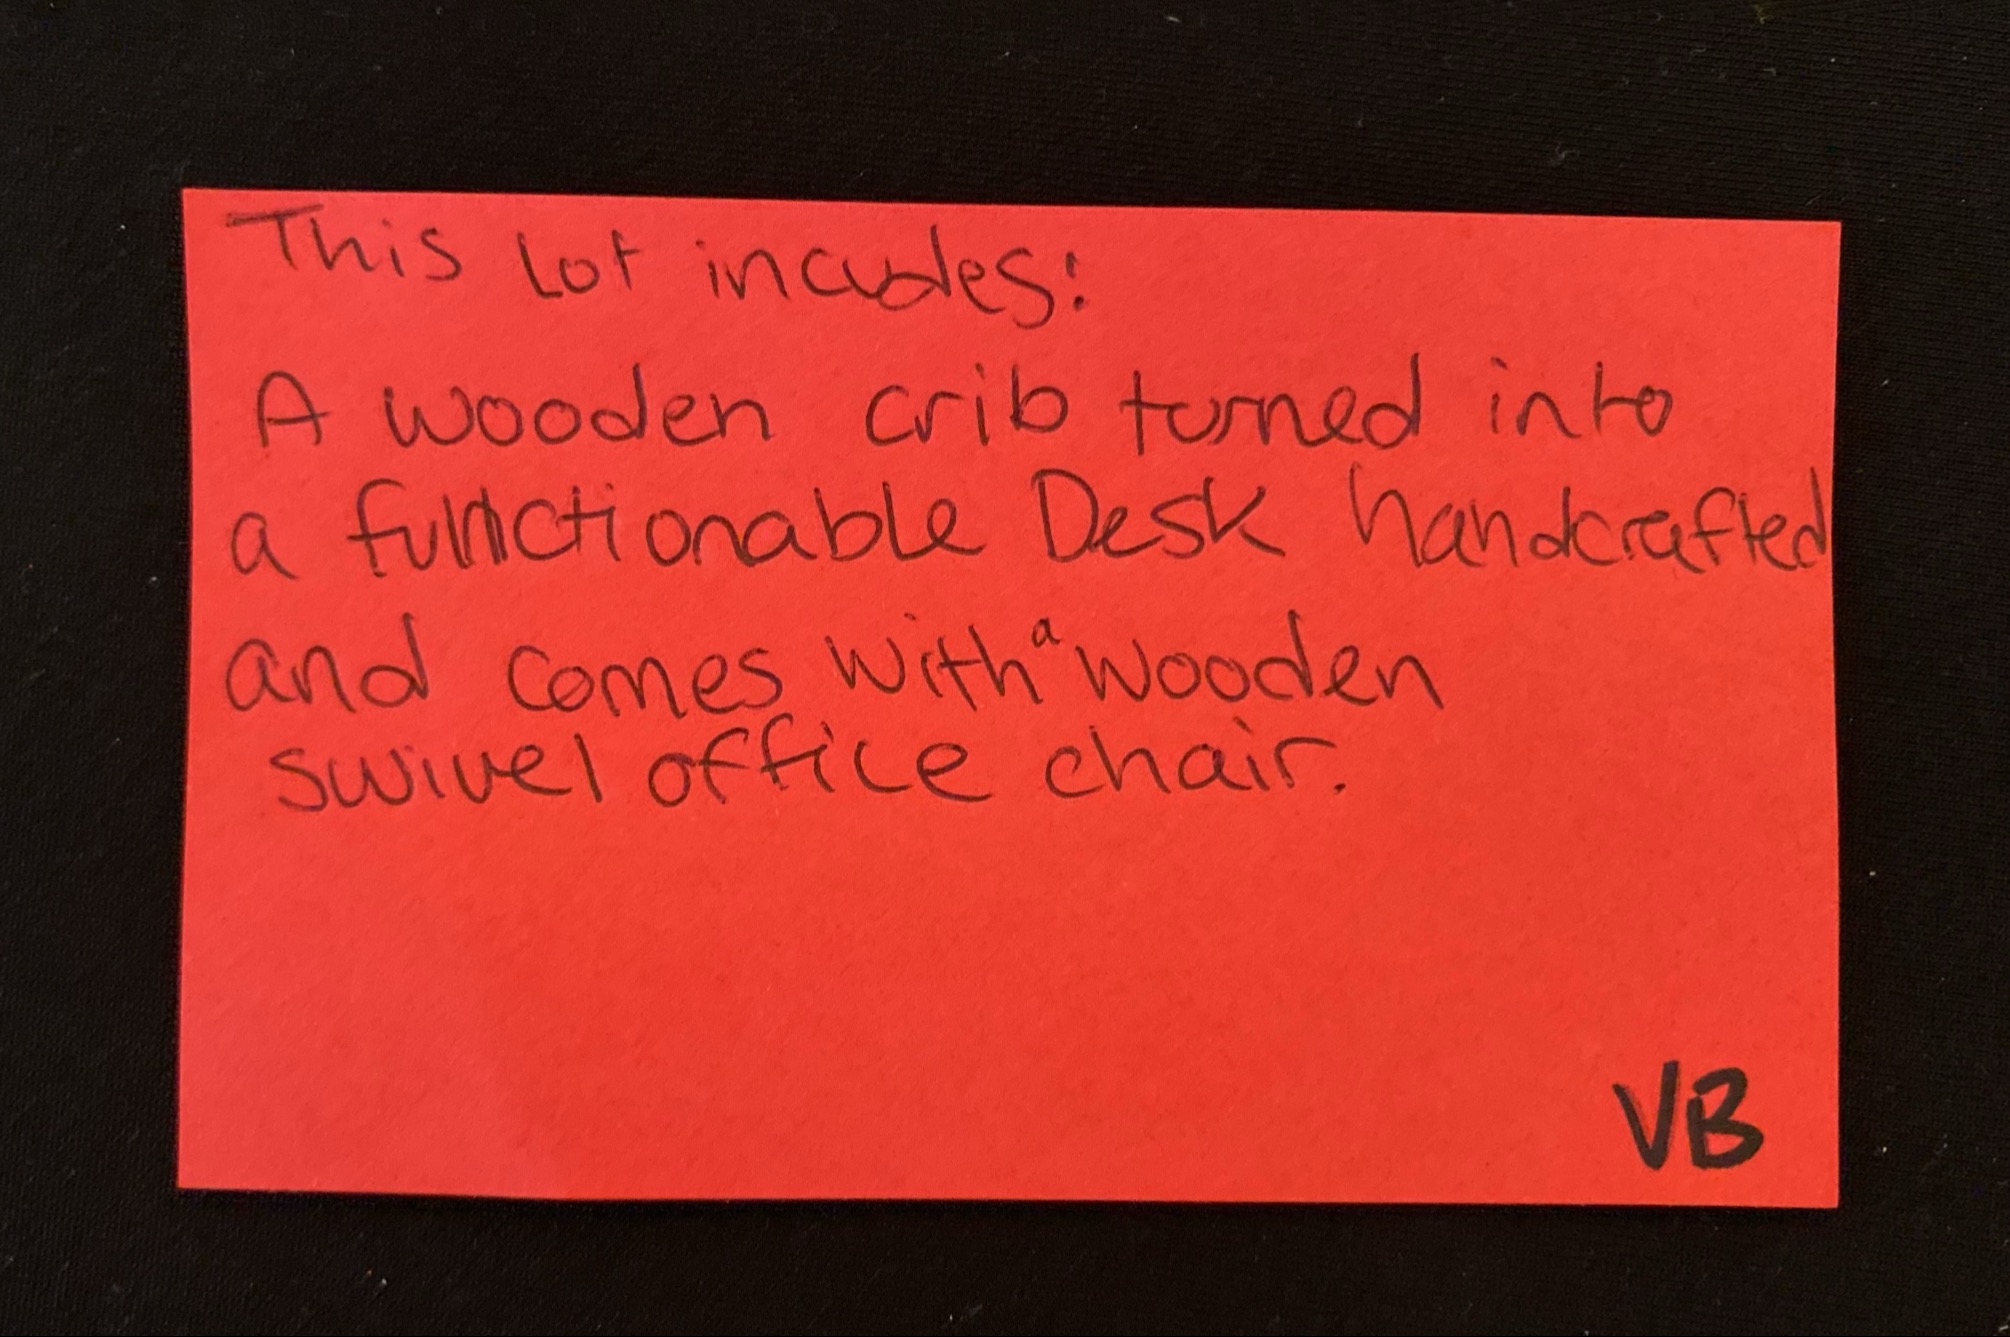 This Lot incudes:
A wooden crib turned into
a functionable Desk handcrafted
and comes with a wooden
swivel office chair.
VB